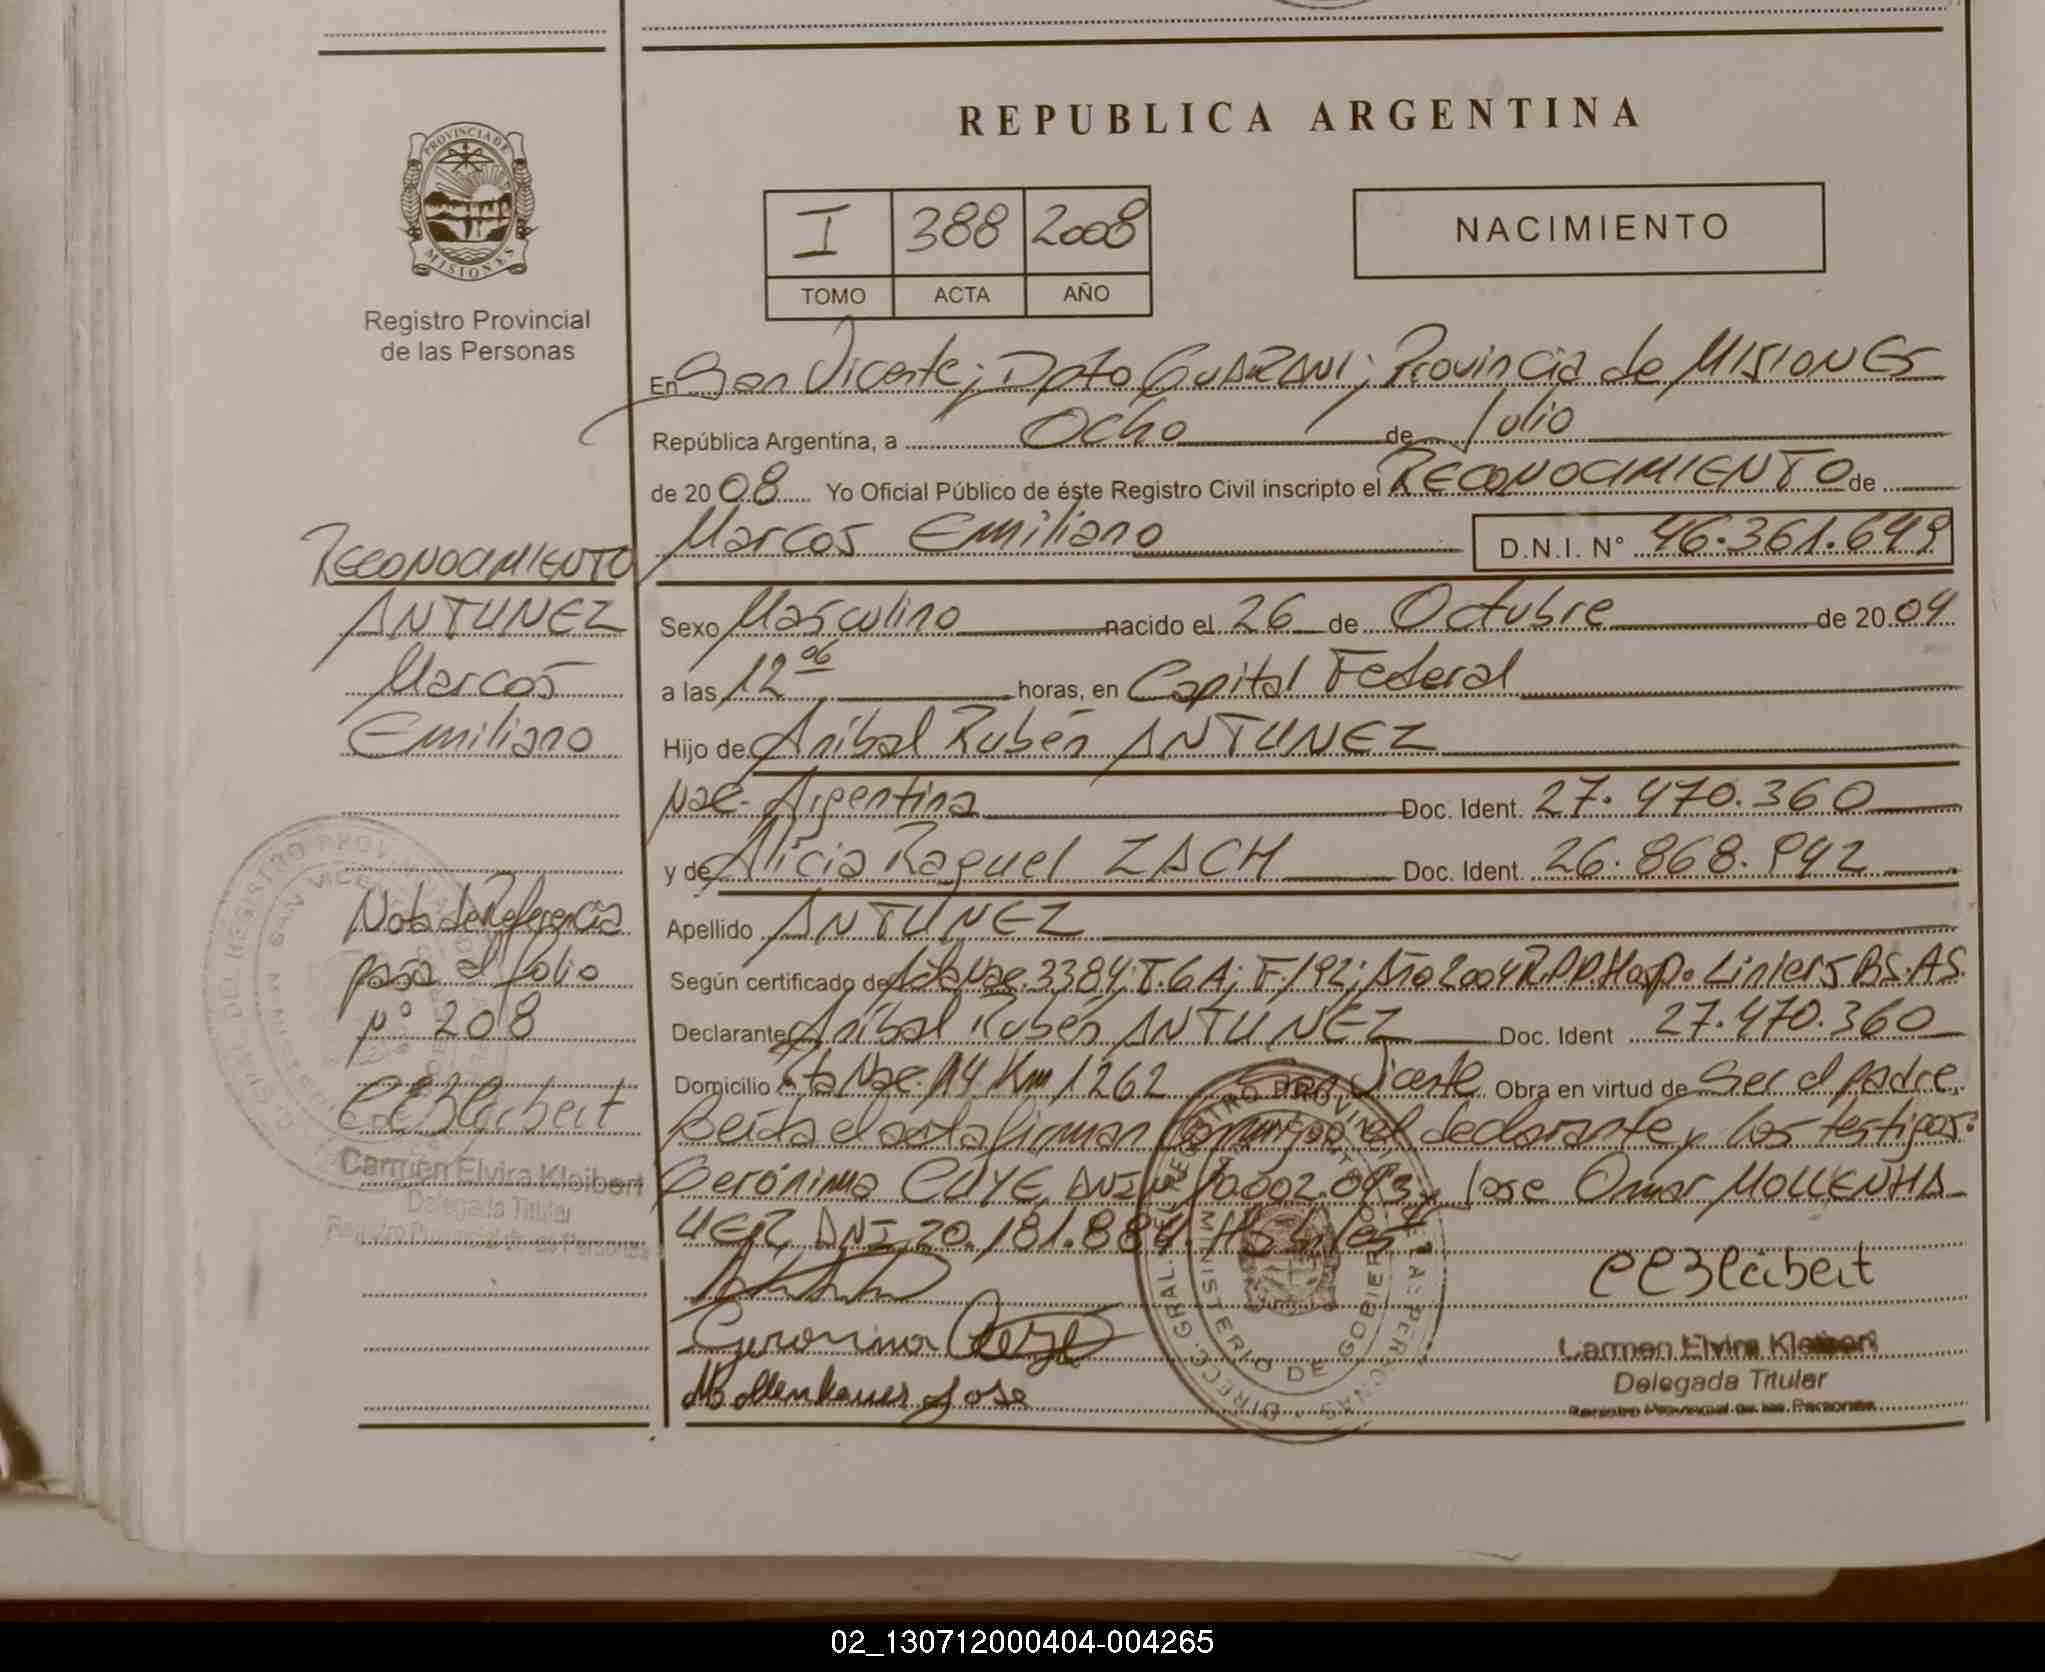 REPUBLICA ARGENTINA
PROVINCIA DE
MISIONES
Registro Provincial
de las Personas
I 388 2008
TOMO ACTA AÑO
NACIMIENTO
En San Vicente; Dpto GUARANI; Provincia de MISIONES
República Argentina, a Ocho de Julio
de 2008 Yo Oficial Público de éste Registro Civil inscripto el RECONOCIMIENTO de
Marcos Emiliano D.N.I. N° 46.361.649
RECONOCIMIENTO
ANTUNEZ
Marcos
Emiliano
Sexo Masculino nacido el 26 de Octubre de 2004
a las 12 06 horas, en Capital Federal
Hijo de Aníbal Rubén ANTUNEZ
Nac. Argentina Doc. Ident. 27.470.360
y de Alicia Raquel ZACH Doc. Ident. 26.868.942
Apellido ANTUNEZ
Según certificado de Acta Nac. 3384; T. 6A; F. 192; Año 2004 R.P.P. Hosp. Liniers BS.AS.
Declarante Aníbal Rubén ANTUNEZ Doc. Ident 27.470.360
Domicilio Rta Nac. 14 Km 1262 San Vicente Obra en virtud de Ser el padre.
Leída el acta firman conmigo el declarante y los testigos:
Gerónima DNI 10.002.093 y Jose Omar MOLLENHA
UER DNI 20.181.884. Hábiles
Nota de Referencia
pasa al folio
N° 208
CEKleibert
Carmen Elvira Kleibert
Delegada Titular
Registro Provincial de las Personas
CEKleibert
Geronima
Mollenhauer Jose
Carmen Elvira Kleibert
Delegada Titular
Registro Provincial de las Personas
DIRECC. GRAL. DEL REGISTRO PROVINCIAL DE LAS PERSONAS
MINISTERIO DE GOBIERNO
02_130712000404-004265